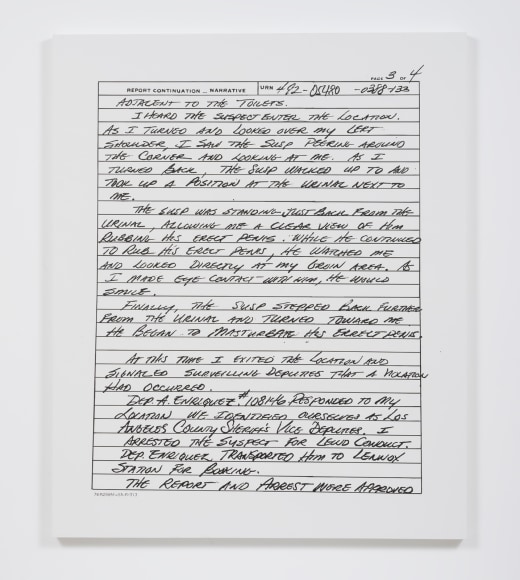 PAGE 3 OF 4
REPORT CONTINUATION – NARRATIVE URN 482-05480 -0388-133
ADJACENT TO THE TOILETS.
I HEARD THE SUSPECT ENTER THE LOCATION.
AS I TURNED AND LOOKED OVER MY LEFT
SHOULDER, I SAW THE SUSP PEERING AROUND
THE CORNER AND LOOKING AT ME. AS I
TURNED BACK, THE SUSP WALKED UP TO AND
TOOK UP A POSITION AT THE URINAL NEXT TO
ME.
THE SUSP WAS STANDING JUST BACK FROM THE
URINAL, ALLOWING ME A CLEAR VIEW OF HIM
RUBBING HIS ERECT PENIS. WHILE HE CONTINUED
TO RUB HIS ERECT PENIS, HE WATCHED ME
AND LOOKED DIRECTLY AT MY GROIN AREA. AS
I MADE EYE CONTACT WITH HIM, HE WOULD
SMILE.
FINALLY, THE SUSP STEPPED BACK FURTHER
FROM THE URINAL AND TURNED TOWARD ME.
HE BEGAN TO MASTURBATE HIS ERRECT PENIS.
AT THIS TIME I EXITED THE LOCATION AND
SIGNALED SURVEILLING DEPUTIES THAT A VIOLATION
HAD OCCURRED.
DEP. A. ENRIQUEZ #108146 RESPONDED TO MY
LOCATION. WE IDENTIFIED OURSELVES AS LOS
ANGELES COUNTY SHERIFF'S VICE DEPUTIES. I
ARRESTED THE SUSPECT FOR LEWD CONDUCT.
DEP. ENRIQUEZ TRANSPORTED HIM TO LENNOX
STATION FOR BOOKING.
THE REPORT AND ARREST WERE APPROVED